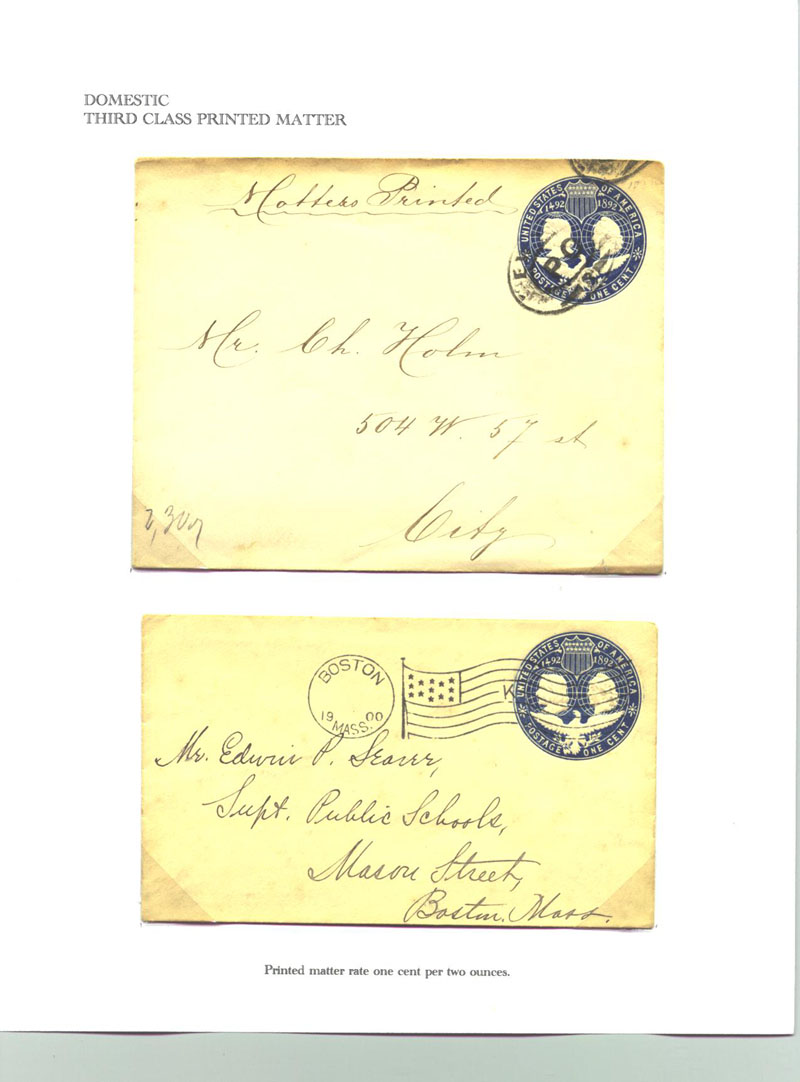 DOMESTIC
THIRD CLASS PRINTED MATTER
Matters Printed
UNITED STATES OF AMERICA
1492 1892
POSTAGE ONE CENT
Mr. Ch. Holm
504 W. 57 st
City
BOSTON
19 00
MASS.
K
UNITED STATES OF AMERICA
1492 1892
POSTAGE ONE CENT
Mr. Edwin P. Seaver,
Supt. Public Schools,
Mason Street,
Boston. Mass.
Printed matter rate one cent per two ounces.